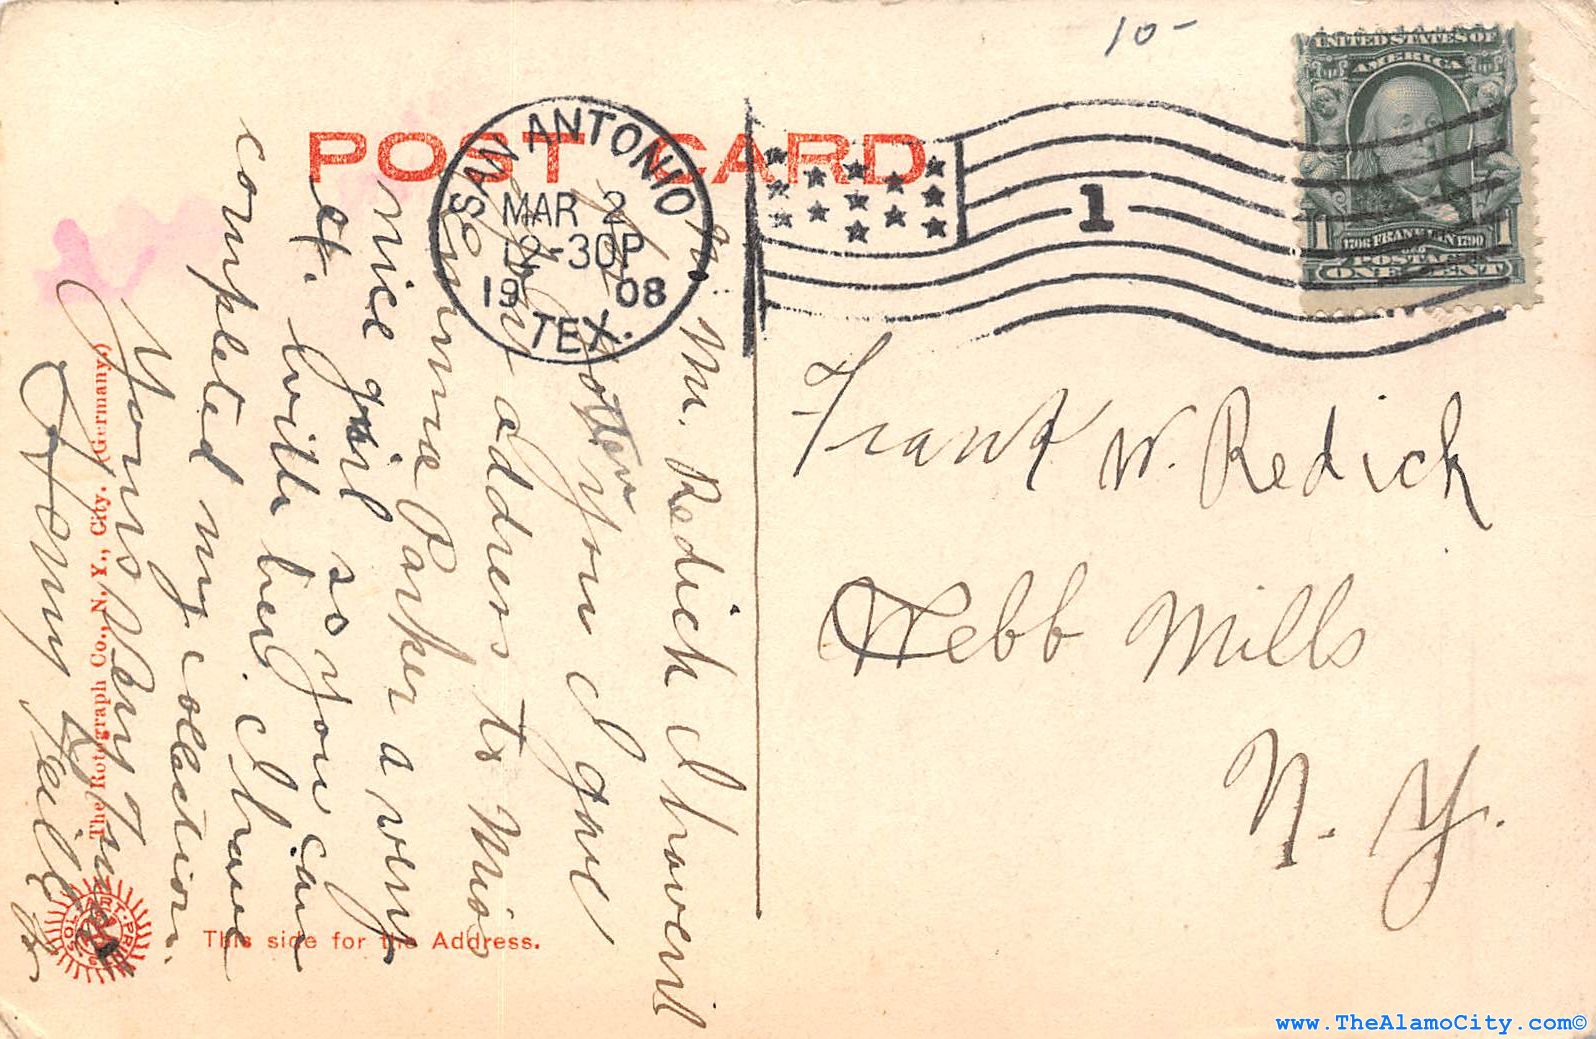 10-
POST CARD
SAN ANTONIO
MAR 2
12-30P
1908
TEX.
1
UNITED STATES OF
AMERICA
1
1
1706 FRANKLIN 1790
POSTAGE
ONE CENT
Mr. Redick I havent
for gotten you I gave
your address to Miss
Emma Parker a very
nice girl so you can
ex. with her. I have
completed my collection.
Yours Very Truly
Jr
Frank W. Redick
Webb Mills
N. Y.
The Rotograph Co., N. Y., City. (Germany.)
This side for the Address.
www.TheAlamoCity.com©